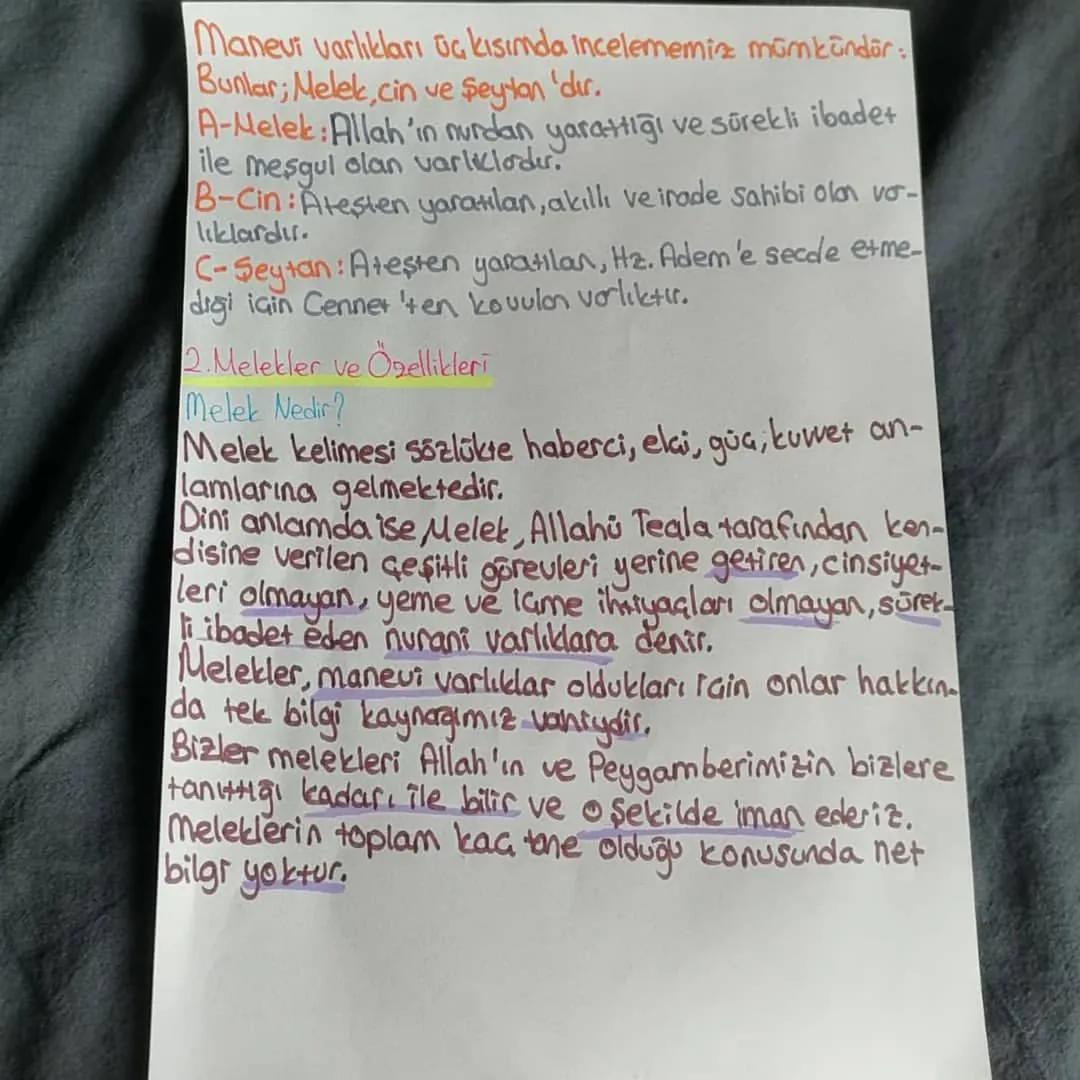 Manevi varlıkları üç kısımda incelememiz mümkündür:
Bunlar; Melek, cin ve Şeytan'dır.
A-Melek: Allah'ın nurdan yarattığı ve sürekli ibadet
ile meşgul olan varlıklardır.
B-Cin: Ateşten yaratılan, akıllı ve irade sahibi olan var-
lıklardır.
C-Şeytan: Ateşten yaratılan, Hz. Adem'e secde etme-
diği için Cennet'ten kovulan varlıktır.
2.Melekler ve Özellikleri
Melek Nedir?
Melek kelimesi sözlükte haberci, elçi, güç, kuvvet an-
lamlarına gelmektedir.
Dini anlamda ise Melek, Allahü Teala tarafından ken-
disine verilen çeşitli görevleri yerine getiren, cinsiyet-
leri olmayan, yeme ve içme ihtiyaçları olmayan, sürek-
li ibadet eden nurani varlıklara denir.
Melekler, manevi varlıklar oldukları için onlar hakkın-
da tek bilgi kaynağımız vahiydir.
Bizler melekleri Allah'ın ve Peygamberimizin bizlere
tanıttığı kadarı ile bilir ve o şekilde iman ederiz.
Meleklerin toplam kaç tane olduğu konusunda net
bilgi yoktur.